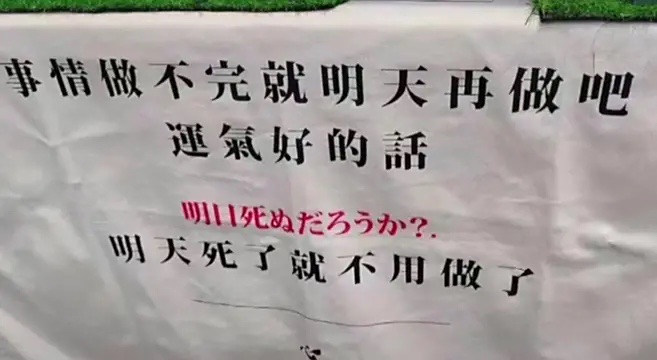 事情做不完就明天再做吧
運氣好的話
明日死ぬだろうか?.
明天死了就不用做了